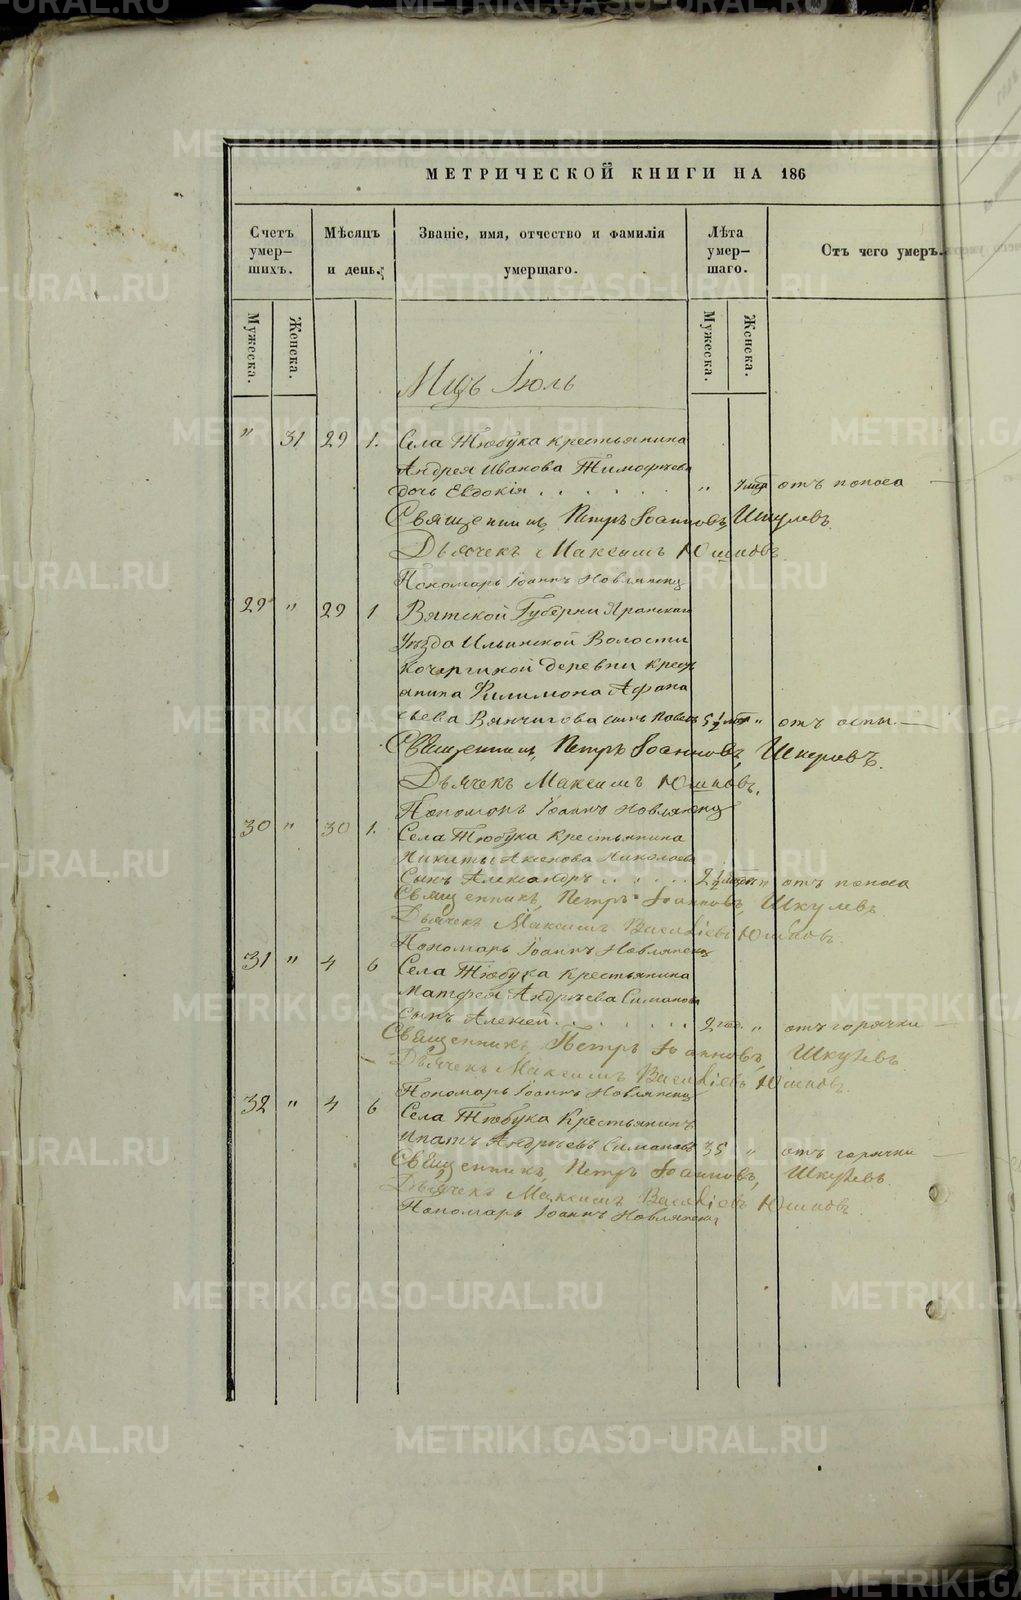 МЕТРИЧЕСКОЙ КНИГИ НА 186
Счетъ умер-шихъ.
Мѣсяцъ и день.
Званіе, имя, отчество и фамилія умершаго.
Лѣта умер-шаго.
Отъ чего умеръ.
Мужеска.
Женска.
Мужеска.
Женска.
Мцъ Іюль
" 31 29 1. Села Тюбука крестьянина
Андрея Иванова Тимофѣева
дочь Евдокія . . . . . . " отъ поноса
Священникъ, Петръ Іоанновъ, Шкулевъ.
Дьячекъ Максимъ Юшковъ
Пономарь Іоаннъ Новлянскій
29 " 29 1 Вятской Губерни Яранскаго
Уѣзда Ильинской Волости
деревни крест
янина Филимона Афана
сьева сынъ Павелъ 5 ½ " отъ оспы
Священникъ, Петръ Іоанновъ, Шкулевъ.
Дьячекъ Максимъ Юшковъ.
Пономарь Іоаннъ Новлянскій
30 " 30 1. Села Тюбука Крестьянина
Никиты Аксенова Николаева
Сынъ Александръ . . . . . 2 ½ " отъ поноса
Священникъ, Петръ Іоанновъ, Шкулевъ
Дьячекъ Максимъ Василіевъ Юшковъ.
Пономарь Іоаннъ Новлянскій
31 " 4 6 Села Тюбука Крестьянина
Матфея Андрѣева Симанова
сынъ Алексей . . . . . . 2 год. " отъ горячки
Священникъ, Петръ Іоанновъ, Шкулевъ
Дьячекъ Максимъ Василіевъ Юшковъ.
Пономарь Іоаннъ Новлянскій
32 " 4 6 Села Тюбука Крестьянинъ
Ипатъ Андрѣевъ Симановъ 35 " отъ горячки
Священникъ, Петръ Іоанновъ, Шкулевъ.
Дьячекъ Максимъ Василіевъ Юшковъ
Пономарь Іоаннъ Новлянскій
METRIKI.GASO-URAL.RU